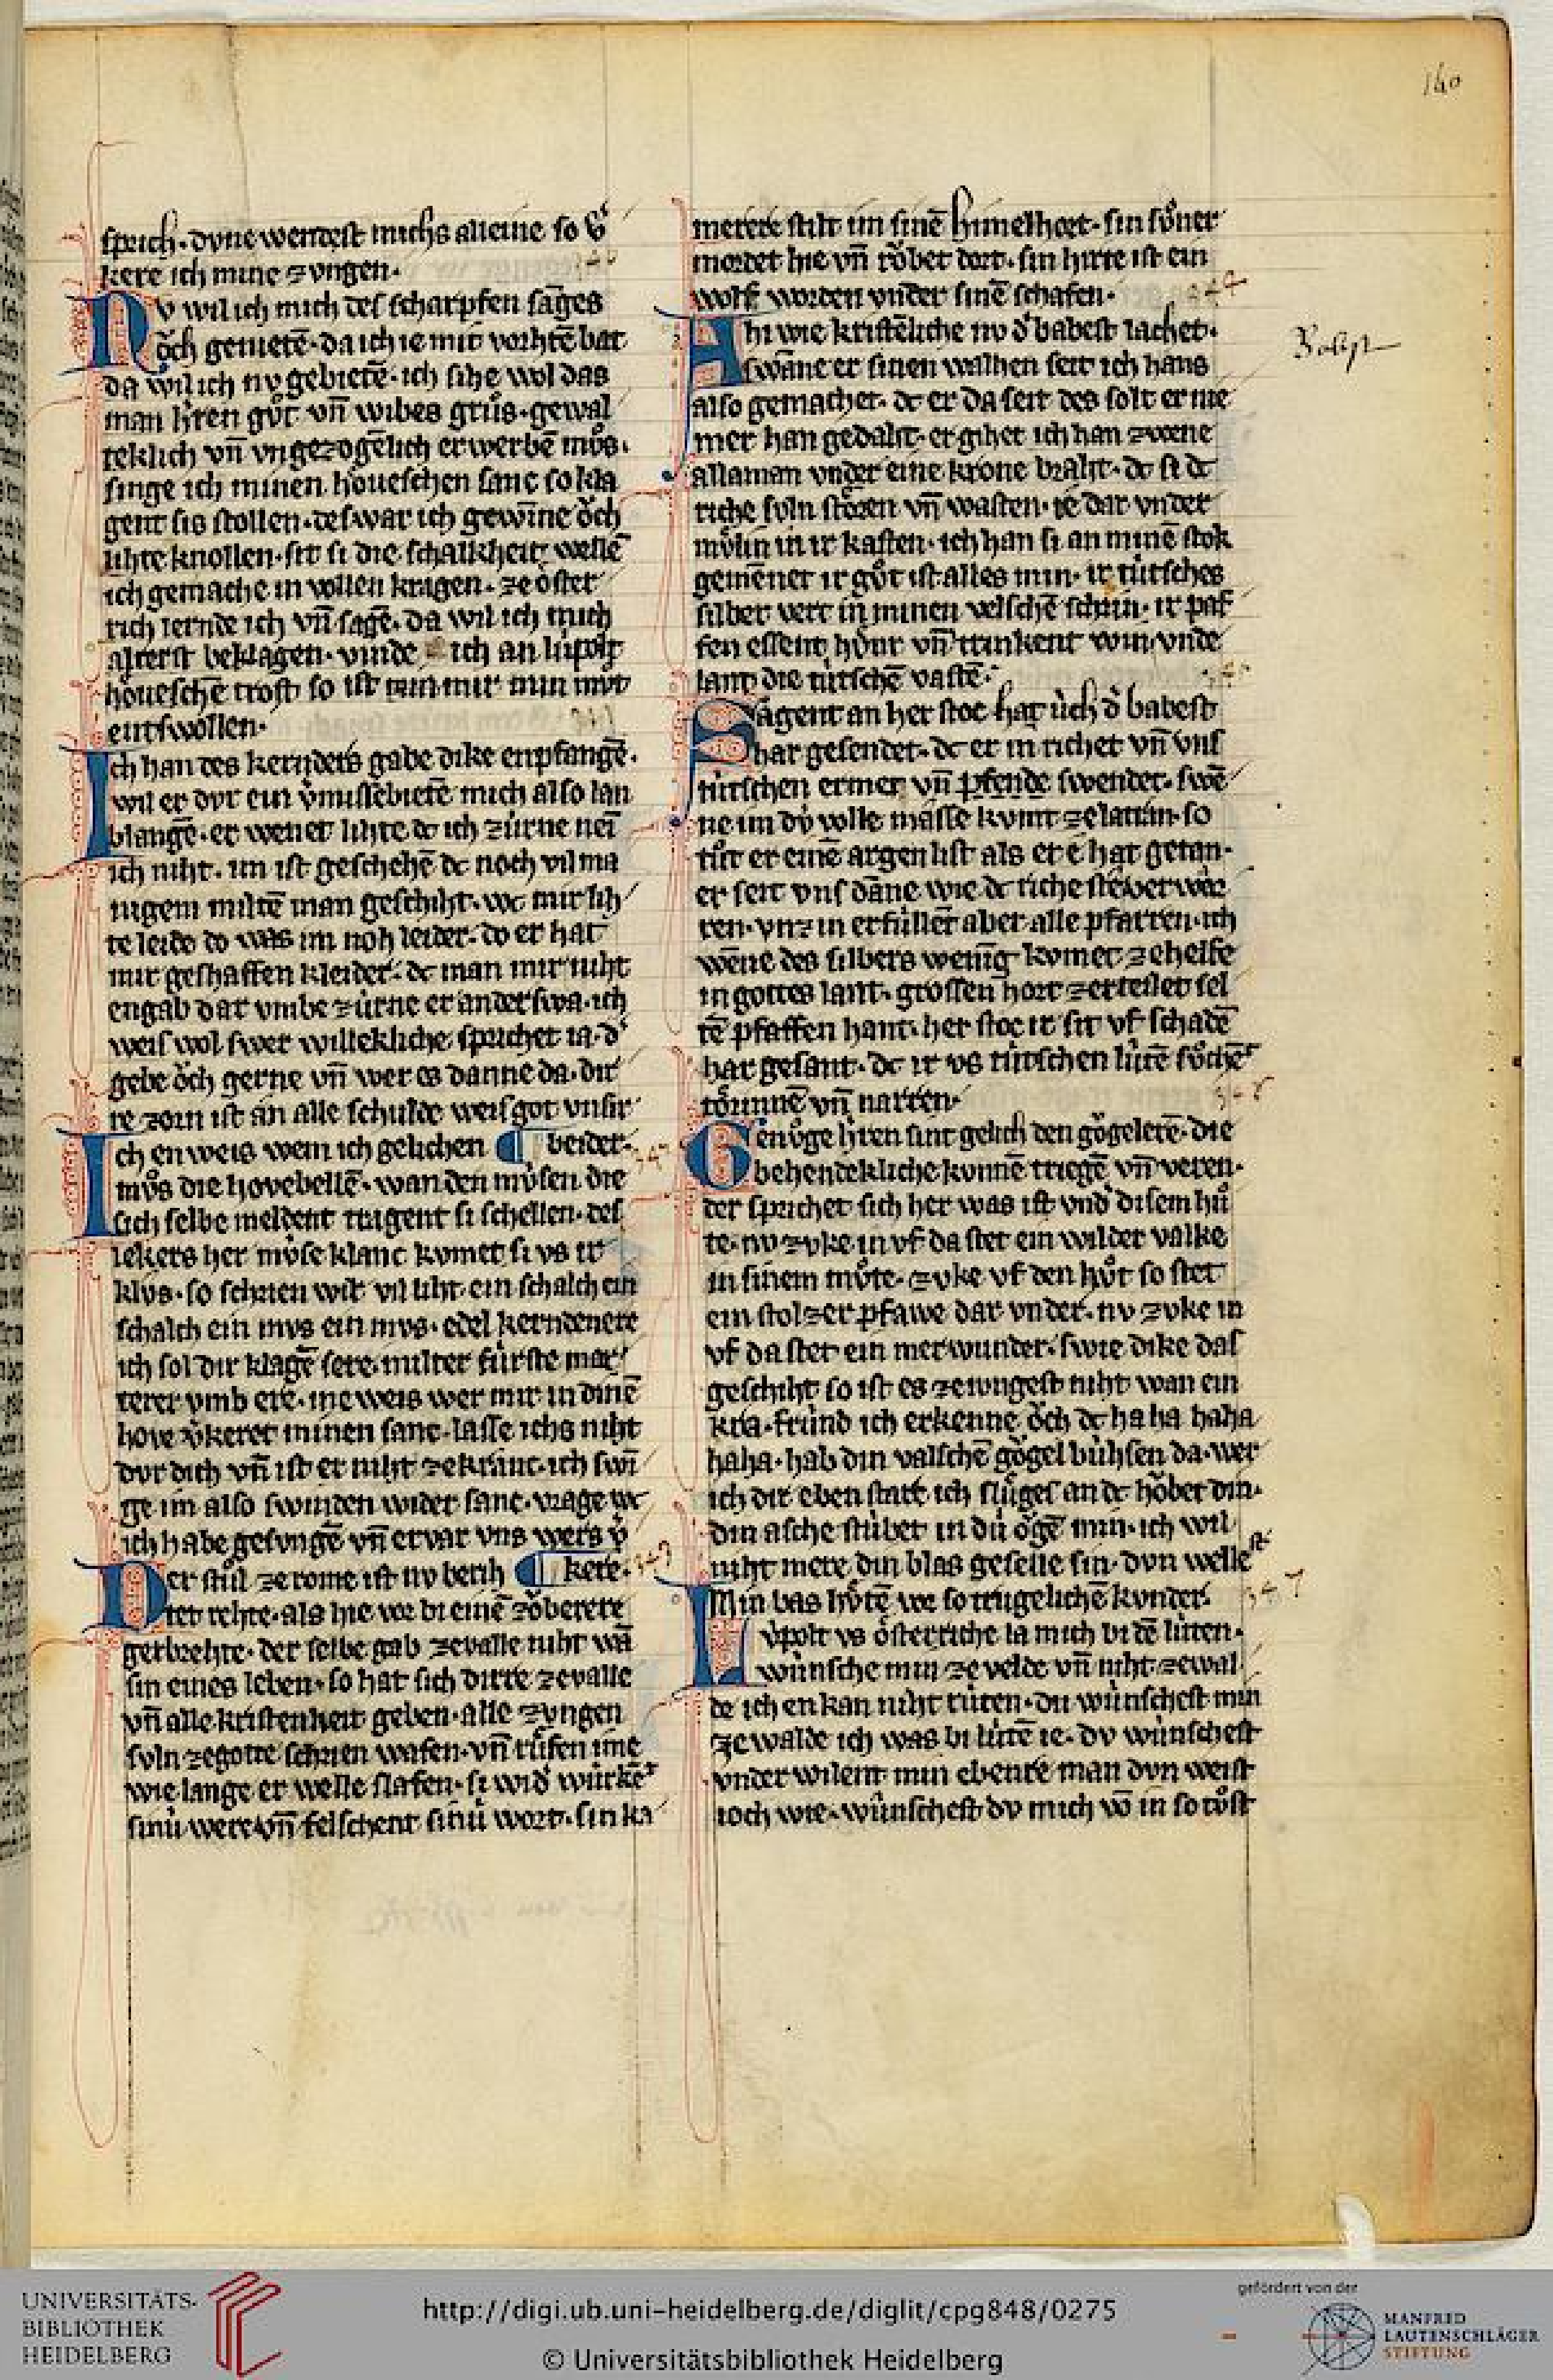 140
sprich. dvne wentest michs alleine so v͛
kere ich mine zvngen.
Nv wil ich mich des scharpfen sāges
o̍ch genietē. da ich ie mit vorhtē bat
da wil ich nv gebietē. ich sihe wol das
man h̍ren gůt vn̄ wibes grůs. gewal
teklich vn̄ vngezogēlich erwerbē můs.
singe ich minen hoveschen sanc so kla
gent sis stollen. deswar ich gewīne o̍ch
lihte knollen. sit si die schalkheit wellē
ich gemache in vollen kragen. ze oster
rich lernde ich vn̄ sagē. da wil ich mich
alrerst beklagen. vinde ich an lúpolt
hoveschē trost so ist mir min můt
entswollen.
Ich han des kernders gabe dike enpfangē.
wil er dvr ein v̍missebietē mich also lan
blangē. er wenet lihte dc ich zúrne neī
ich niht. im ist geschehē dc noch vil ma
nigem miltē man geschiht. wc mir lih
te leide do was im noh leider. do er hat
mir geshaffen kleider. dc man mir niht
engab dar vmbe zúrne er anderswa. ich
weis wol swer willekliche sprichet ia. d͛
gebe o̍ch gerne vn̄ wer es danne da. dir
re zorn ist an alle schulde weisgot vnsir
Ich enweis wem ich gelichen ¶ beider.
můs die hovebellē. wan den mv́sen die
sich selbe meldent tragent si schellen. des
lekers her mvse klanc komet si vs ir
klvs. so schrien wir vil liht. ein schalch ein
schalch ein mvs ein mvs. edel kerndenere
ich sol dir klagē sere. milter fúrste mar
terer vmb ere. ine weis wer mir in dinē
hove v̍keret minen sanc. lasse ichs niht
dvr dich vn̄ ist er niht ze kranc. ich swī
ge im also swinden wider sanc. vrage wc
ich habe gesvngē vn̄ ervar vns wers v̍
Der stůl ze rome ist nv berih ¶ kere.
tet rehte. als hie vor bi einē zo̍berere
gerbrehte. der selbe gab ze valle niht wā
sin eines leben. so hat sich dirre ze valle
vn̄ alle kristenheit geben. alle zvngen
svln ze gotte schrien wafen. vn̄ růfen ime
wie lange er welle slafen. si wid͛ wúrkēt
sinú were vn̄ felschent sinú wort. sin ka
merere stilt im sinē himelhort. sin sůner
mordet hie vn̄ ro̍bet dort. sin hirte ist ein
wolf worden vnder sinē schafen.
344
Ahi wie kristēliche nv d͛ babest lachet.
swāne er sinen walhen seit ich hans
also gemachet. dc er da seit des solt er nie
mer han gedaht. er gihet ich han zwene
allaman vnder eine krone braht. dc si dc
riche svln stōren vn̄ wasten. ie dar vnder
mv́lin in ir kasten. ich han si an minē stok
gemēnet ir gůt ist alles min. ir tútsches
silber vert in minen velschē schrin. ir paf
fen essent hv́nr vn̄ trinkent win. vnde
lant die tútschē vastē.
Sagent an her stoc hat úch d͛ babest
har gesendet. dc er in richet vn̄ vns
tútschen ermet vn̄ pfende swendet. swē
ne im dv́ volle masse kvmt ze latran. so
tůt er einē argen list als er e hat getan.
er seit vns dāne wie dc riche ste verwar
ren. vnz in erfúllēt aber alle pfarren. ich
wēne des silbers wenig komet ze helfe
in gottes lant. grossen hort zerteilet sel
tē pfaffen hant. her stoc ir sit vf schadē
har gesant. dc ir vs tútschen lútē sůchēt
to̍rinnē vn̄ narren.
Genůge h̍ren sint gelich den gōgelerē. die
behendekliche konnē triegē vn̄ veren.
der sprichet sich her was ist vnd͛ disem hů
te. nv zvke in vf da stet ein wilder valke
in sinem můte. zvke vf den hůt so stet
ein stolzer pfawe dar vnder. nv zvke in
vf da stet ein merwunder. swie dike das
geschiht so ist es ze ivngest niht wan ein
kra. frúnd ich erkenne o̍ch dc haha haha
haha. hab din valschē gōgel búhsen da. wer
ich dir eben stark ich slúges an dc ho̍bet din.
din asche stúbet in dú o̍gē min. ich wil
niht mere din blas geselle sin. dvn wellest
Min bas hv̍tē vor so trugelichē kvnder.
347
Lv́polt vs o̍sterriche la mich bi dē lúten.
wúnsche min ze velde vn̄ niht ze wal
de ich enkan niht rúten. du wúnschest min
ze walde ich was bi lútē ie. dv wúnschest
vnder wilent min ebenre man dvn weist
ioch wie. wúnschest dv mich vō in so tůst
UNIVERSITÄTS-
BIBLIOTHEK
HEIDELBERG
http://digi.ub.uni-heidelberg.de/diglit/cpg848/0275
© Universitätsbibliothek Heidelberg
gefördert von der
MANFRED
LAUTENSCHLÄGER
STIFTUNG